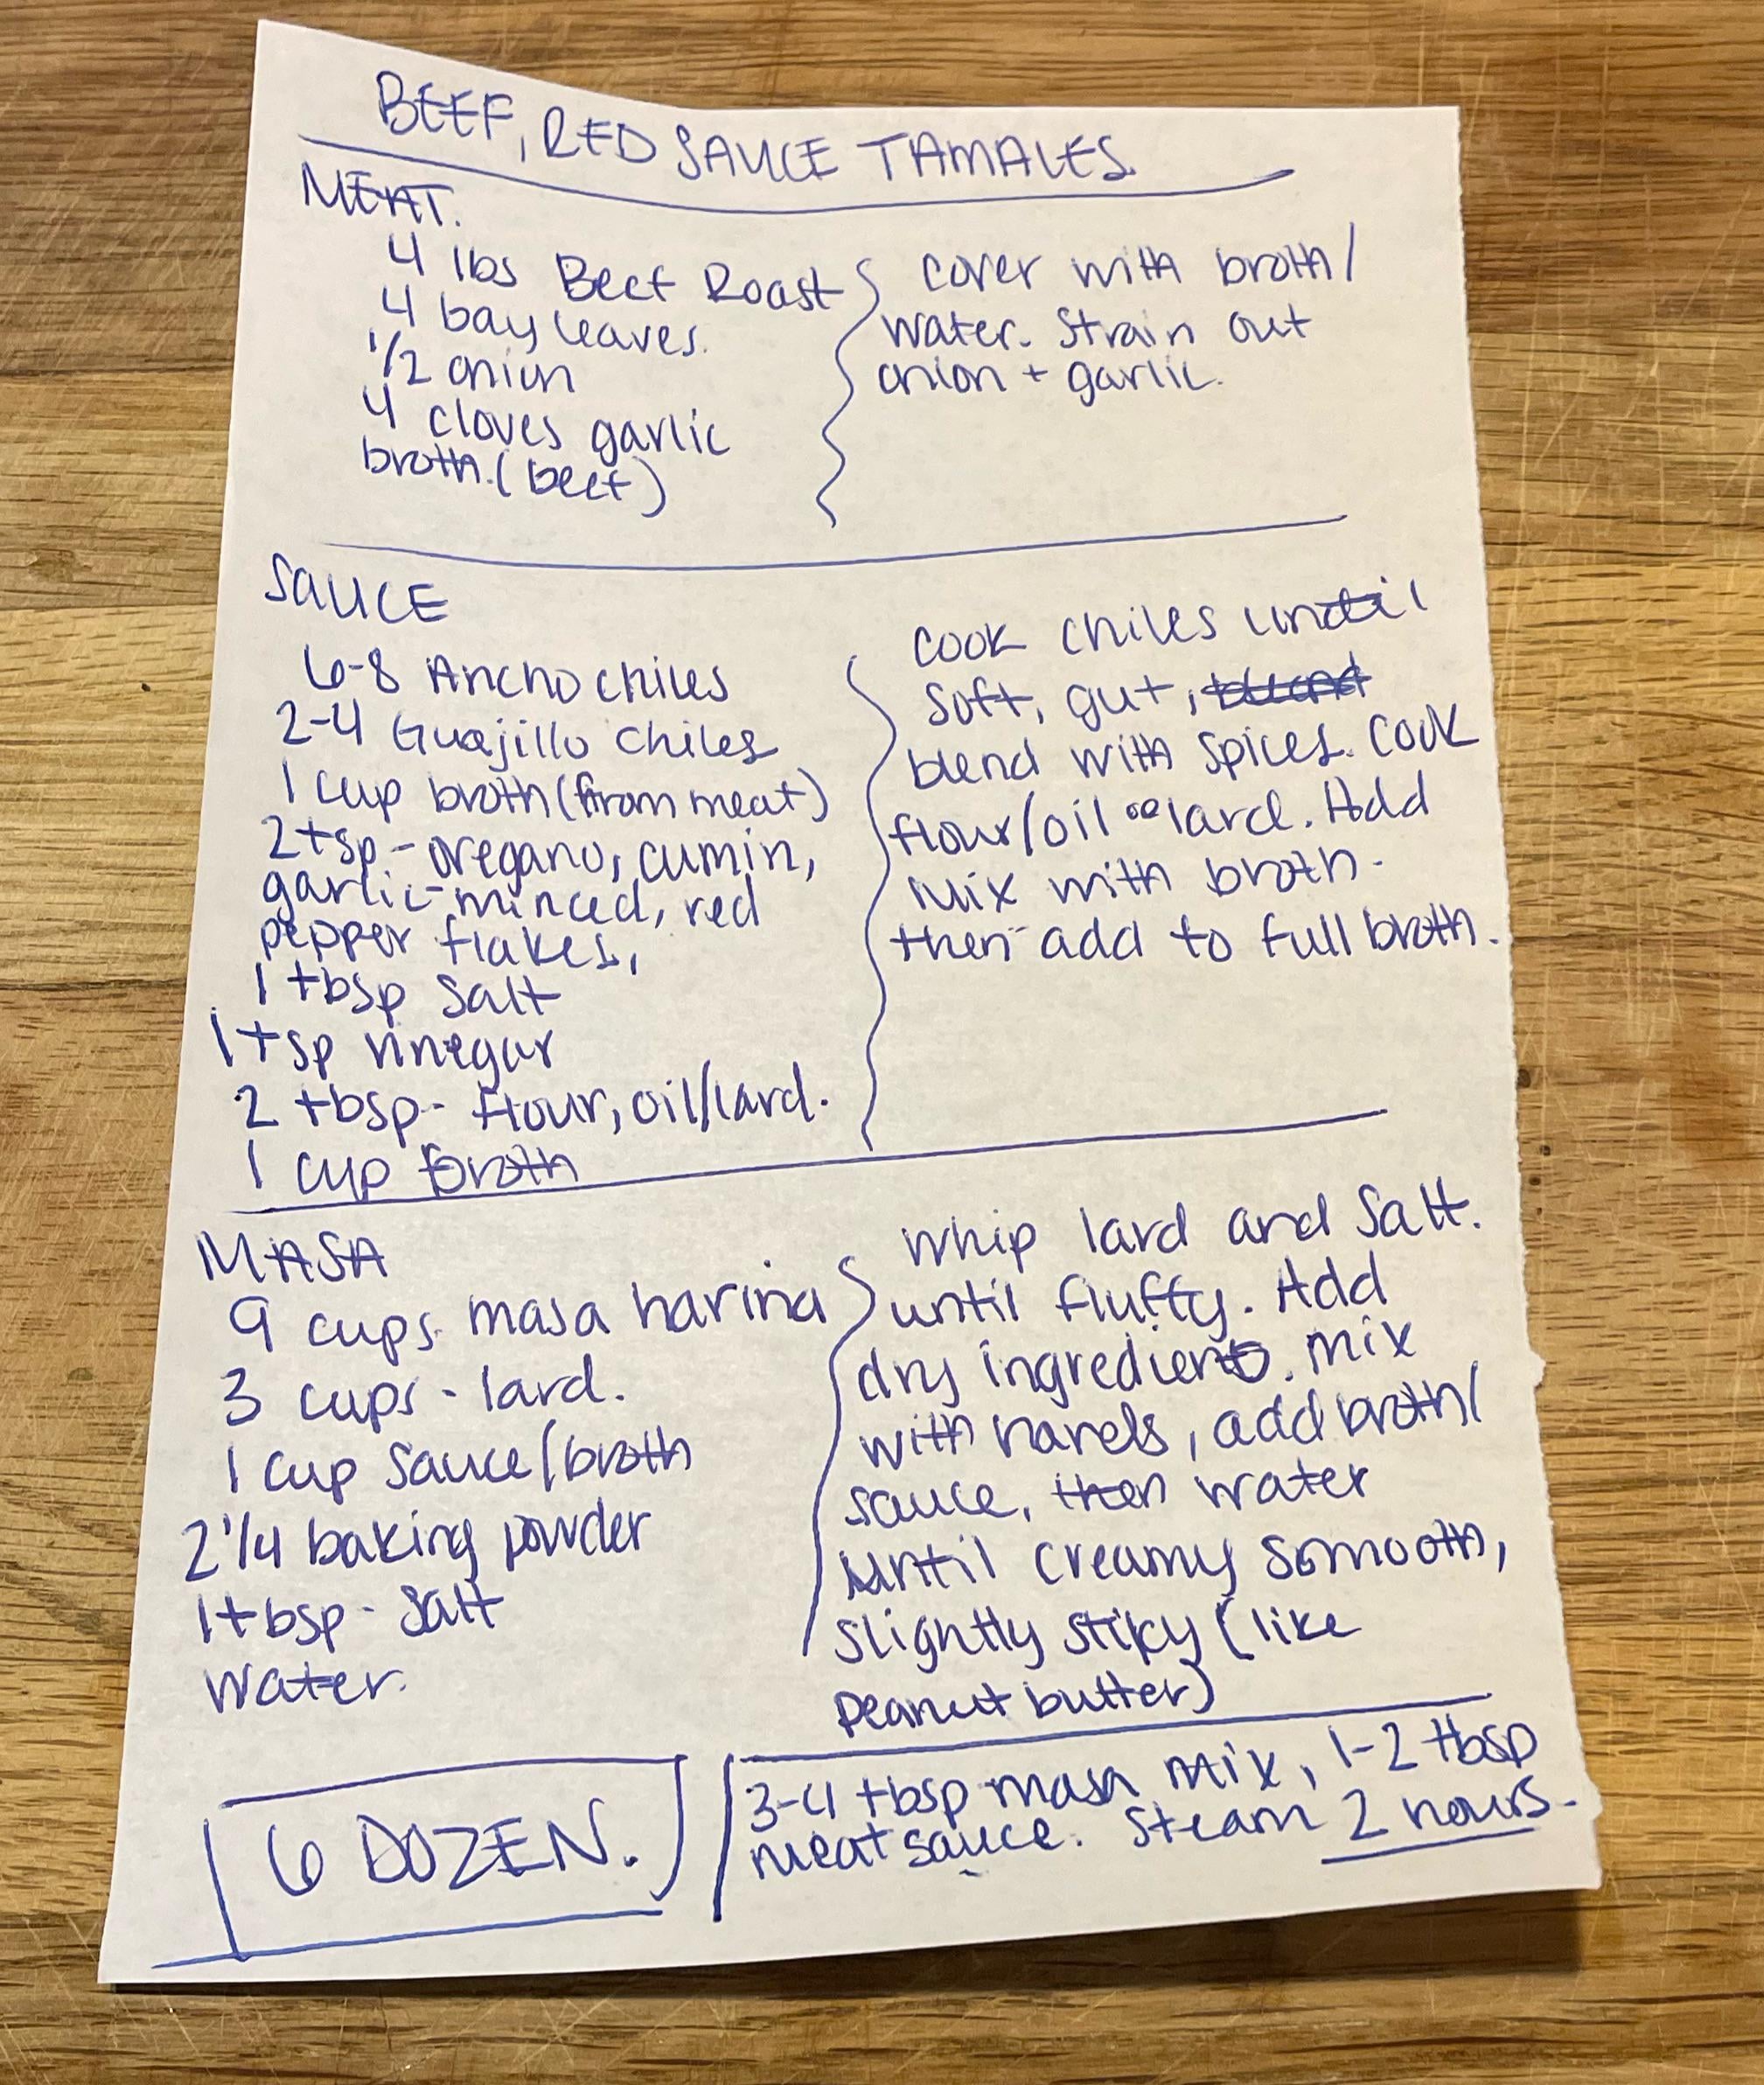 BEEF, RED SAUCE TAMALES.
MEAT.
4 lbs Beef Roast
4 bay leaves.
1/2 onion
4 cloves garlic
broth.(beef)
cover with broth/
water. Strain out
onion + garlic.
SAUCE
6-8 Ancho chiles
2-4 Guajillo chiles
1 cup broth (from meat)
2 tsp - oregano, cumin,
garlic-minced, red
pepper flakes,
1 tbsp Salt
1 tsp vinegar
2 tbsp - flour, oil/lard.
1 cup broth
cook chiles until
soft, gut,
blend with spices. Cook
flour/oil or lard. Add
Mix with broth.
then add to full broth.
MASA
9 cups masa harina
3 cups - lard.
1 cup Sauce/broth
2 1/4 baking powder
1 tbsp - Salt
Water.
Whip lard and Salt.
until fluffy. Add
dry ingredients. Mix
with hands, add broth/
sauce, then water
until creamy smooth,
slightly stiky (like
peanut butter)
6 DOZEN.
3-4 tbsp masa mix, 1-2 tbsp
meat sauce. Steam 2 hours.